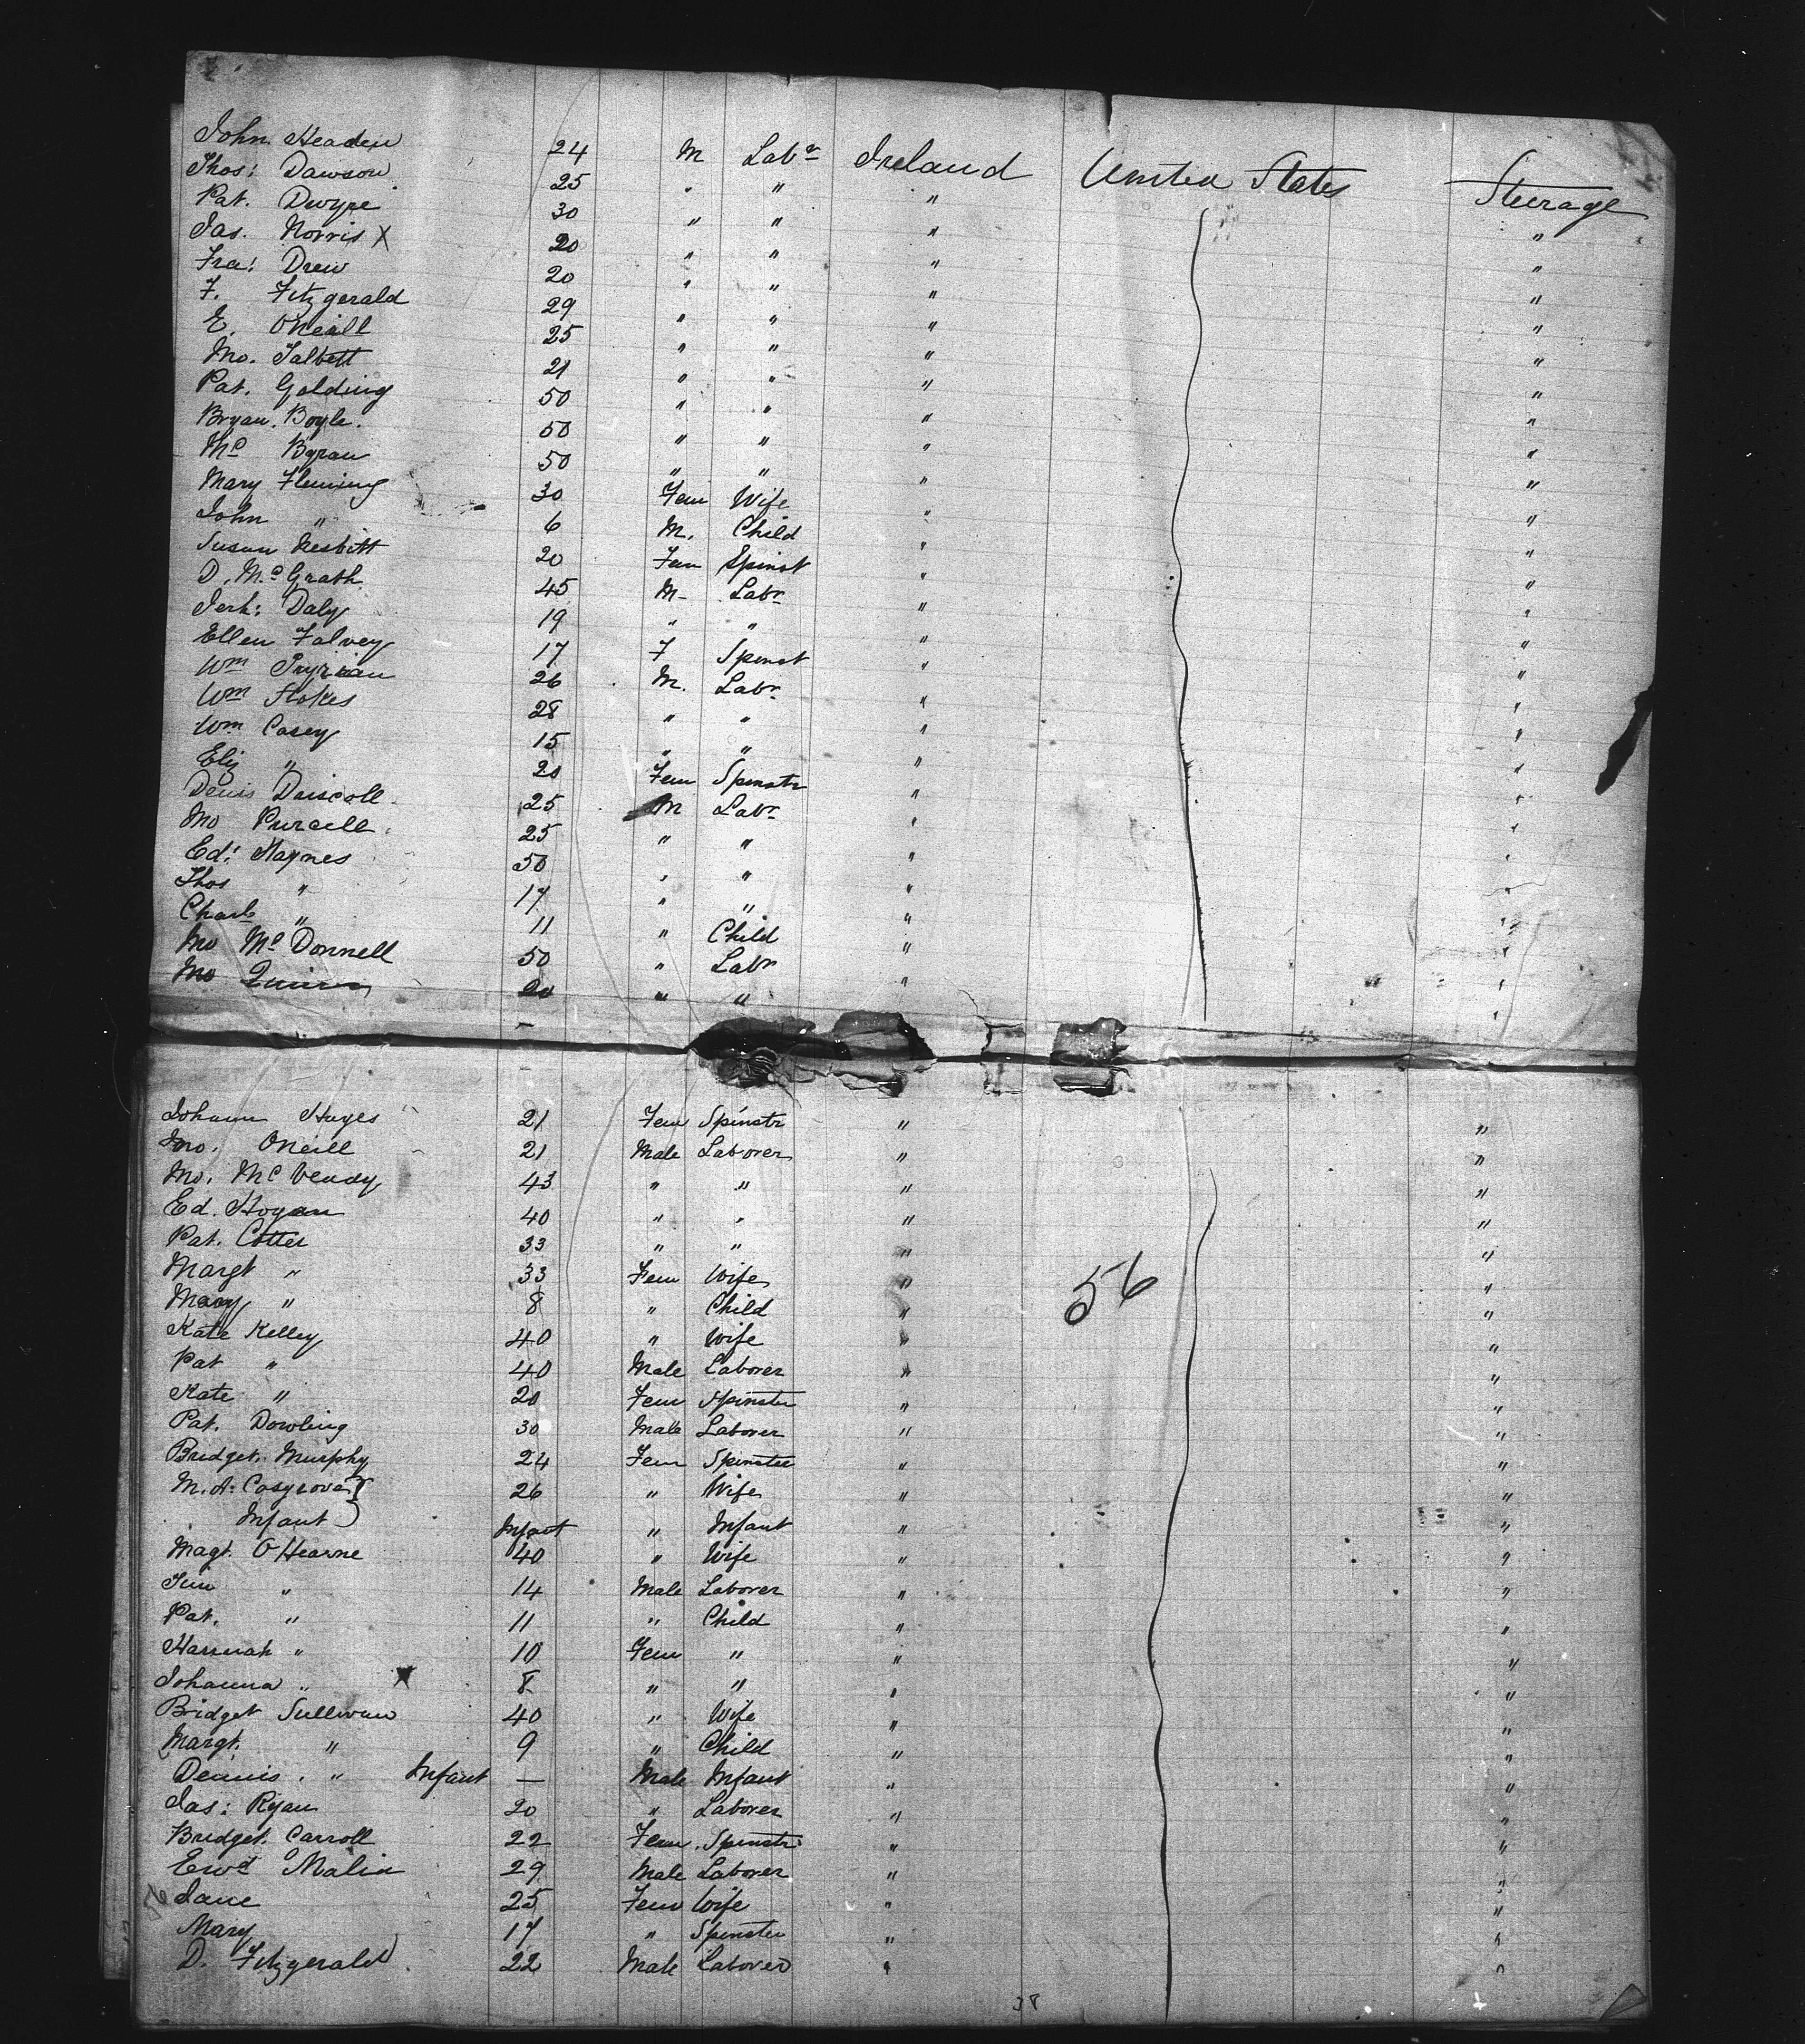 John Headen 24 M Labr Ireland United States Steerage
Thos: Dawson 25 " " " "
Pat. Dwyre 30 " " " "
Jas. Norris X 20 " " " "
Fra: Drew 20 " " " "
F. Fitzgerald 29 " " " "
E. ONeill 25 " " " "
Jno. Talbott 21 " " " "
Pat. Golding 50 " " " "
Bryan Boyle. 50 " " " "
Mc Byran 50 " " " "
Mary Fleming 30 Fem Wife " "
John " 6 M. Child " "
Susan Nesbitt 20 Fem Spinst " "
D. McGrath 45 M- Labr " "
Jerh: Daly 19 " " " "
Ellen Falvey 17 F Spinst " "
Wm 26 M. Labr " "
Wm Stokes 28 " " " "
Wm Casey 15 " " " "
Eliz " 20 Fem Spinstr " "
Denis Driscoll 25 M Labr " "
Jno Purcell 25 " " " "
Ed: Haynes 50 " " " "
Thos " 17 " " " "
Charls " 11 " Child " "
Jno McDonnell 50 " Labr " "
Jno Quinn 20 " " " "
Johann Hayes 21 Fem Spinstr " "
Jno. ONeill 21 Male Laborer " "
Jno. Mc 43 " " " "
Ed. Hogan 40 " " " "
Pat. Cotter 33 " " " "
Margt " 33 Fem Wife " 56 "
Mary " 8 " Child " "
Kate Kelley 40 " Wife " "
Pat " 40 Male Laborer " "
Kate " 20 Fem Spinster " "
Pat. Dowling 30 Male Laborer " "
Bridget Murphy 24 Fem Spinster " "
M. A. Cosgrove } 26 " Wife " "
Infant } Infant " Infant " "
Magt. O Hearne 40 " Wife " "
Tim " 14 Male Laborer " "
Pat. " 11 " Child " "
Hannah " 10 Fem " " "
Johanna " 8 " " " "
Bridget Sullivan 40 " Wife " "
Margt. " 9 " Child " "
Dennis. " Infant — Male Infant " "
Jas: Ryan 20 " Laborer " "
Bridget Carroll 22 Fem Spinstr " "
Ewd Malia 29 Male Laborer " "
56 Jane 25 Fem Wife " "
Mary 17 " Spinster " "
D. Fitzgerald 22 Male Laborer " "
38